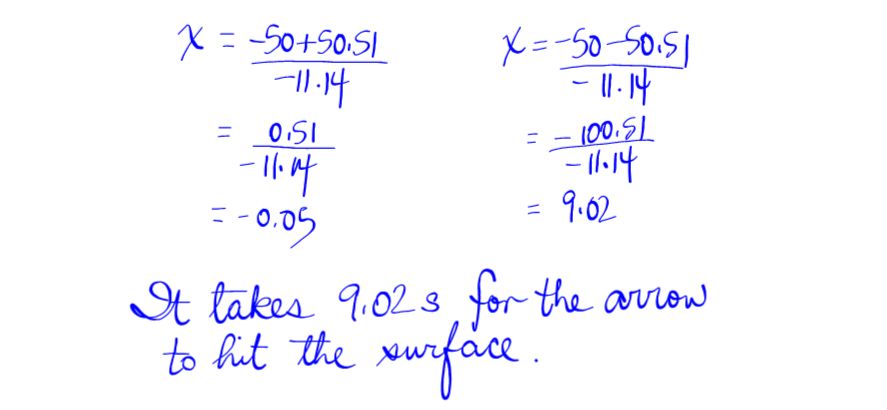 x = -50+50.51 / -11.14
= 0.51 / -11.14
= -0.05
x = -50-50.51 / -11.14
= -100.51 / -11.14
= 9.02
It takes 9.02s for the arrow
to hit the surface.